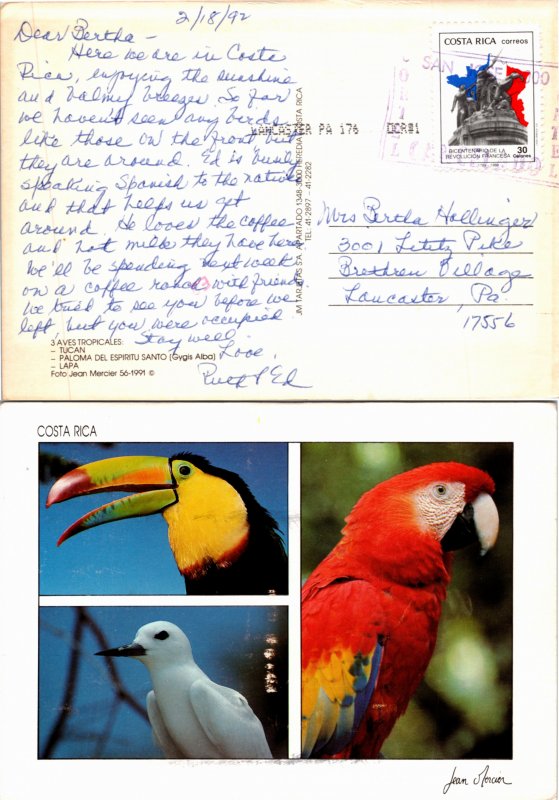 2/18/92
Dear Bertha -
Here we are in Costa
Rica, enjoying the sunshine
and balmy breezes. So far
we haven't seen any birds
like those on the front but
they are around. Ed is busy
speaking Spanish to the natives
and that helps us get
around. He loves the coffee
and hot milk they have here
We'll be spending next week
on a coffee ranch with friends.
We tried to see you before we
left, but you were occupied.
Stay well.
Love,
Ruth & Ed
3 AVES TROPICALES:
- TUCAN
- PALOMA DEL ESPIRITU SANTO (Gygis Alba)
- LAPA
Foto Jean Mercier 56-1991 ©
JM TARJETAS S.A. APARTADO 1348-3000 HEREDIA COSTA RICA
TEL. 41-2897 - 41-2282
LANCASTER PA 176 OCR#1
SAN JOSE
COSTA RICA correos
BICENTENARIO DE LA
REVOLUCION FRANCESA
30
Colones
Mrs Bertha Hollinger
3001 Lititz Pike
Brethren Village
Lancaster, Pa.
17556
COSTA RICA
Jean Mercier